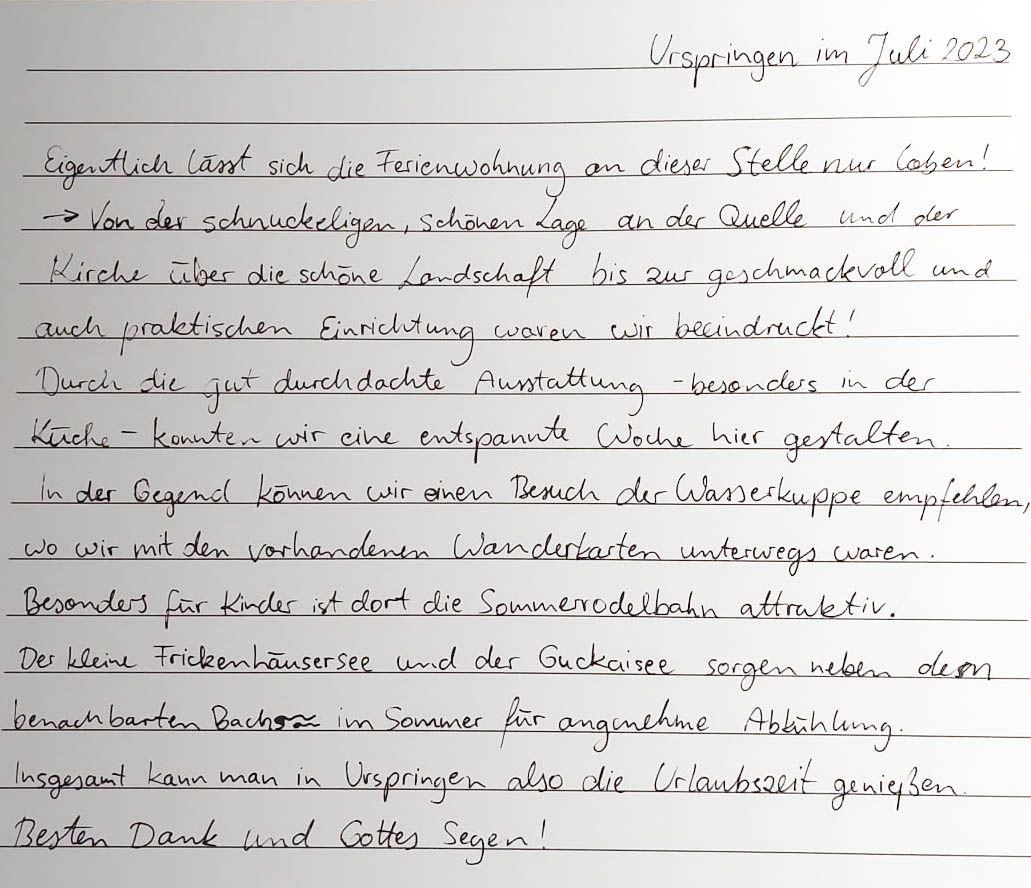 Urspringen im Juli 2023
Eigentlich lässt sich die Ferienwohnung an dieser Stelle nur loben!
→ Von der schnuckeligen, schönen Lage an der Quelle und der
Kirche über die schöne Landschaft bis zur geschmackvoll und
auch praktischen Einrichtung waren wir beeindruckt!
Durch die gut durchdachte Ausstattung - besonders in der
Küche - konnten wir eine entspannte Woche hier gestalten.
In der Gegend können wir einen Besuch der Wasserkuppe empfehlen,
wo wir mit den vorhandenen Wanderkarten unterwegs waren.
Besonders für Kinder ist dort die Sommerrodelbahn attraktiv.
Der kleine Frickenhäusersee und der Guckaisee sorgen neben dem
benachbarten Bach im Sommer für angenehme Abkühlung.
Insgesamt kann man in Urspringen also die Urlaubszeit genießen.
Besten Dank und Gottes Segen!